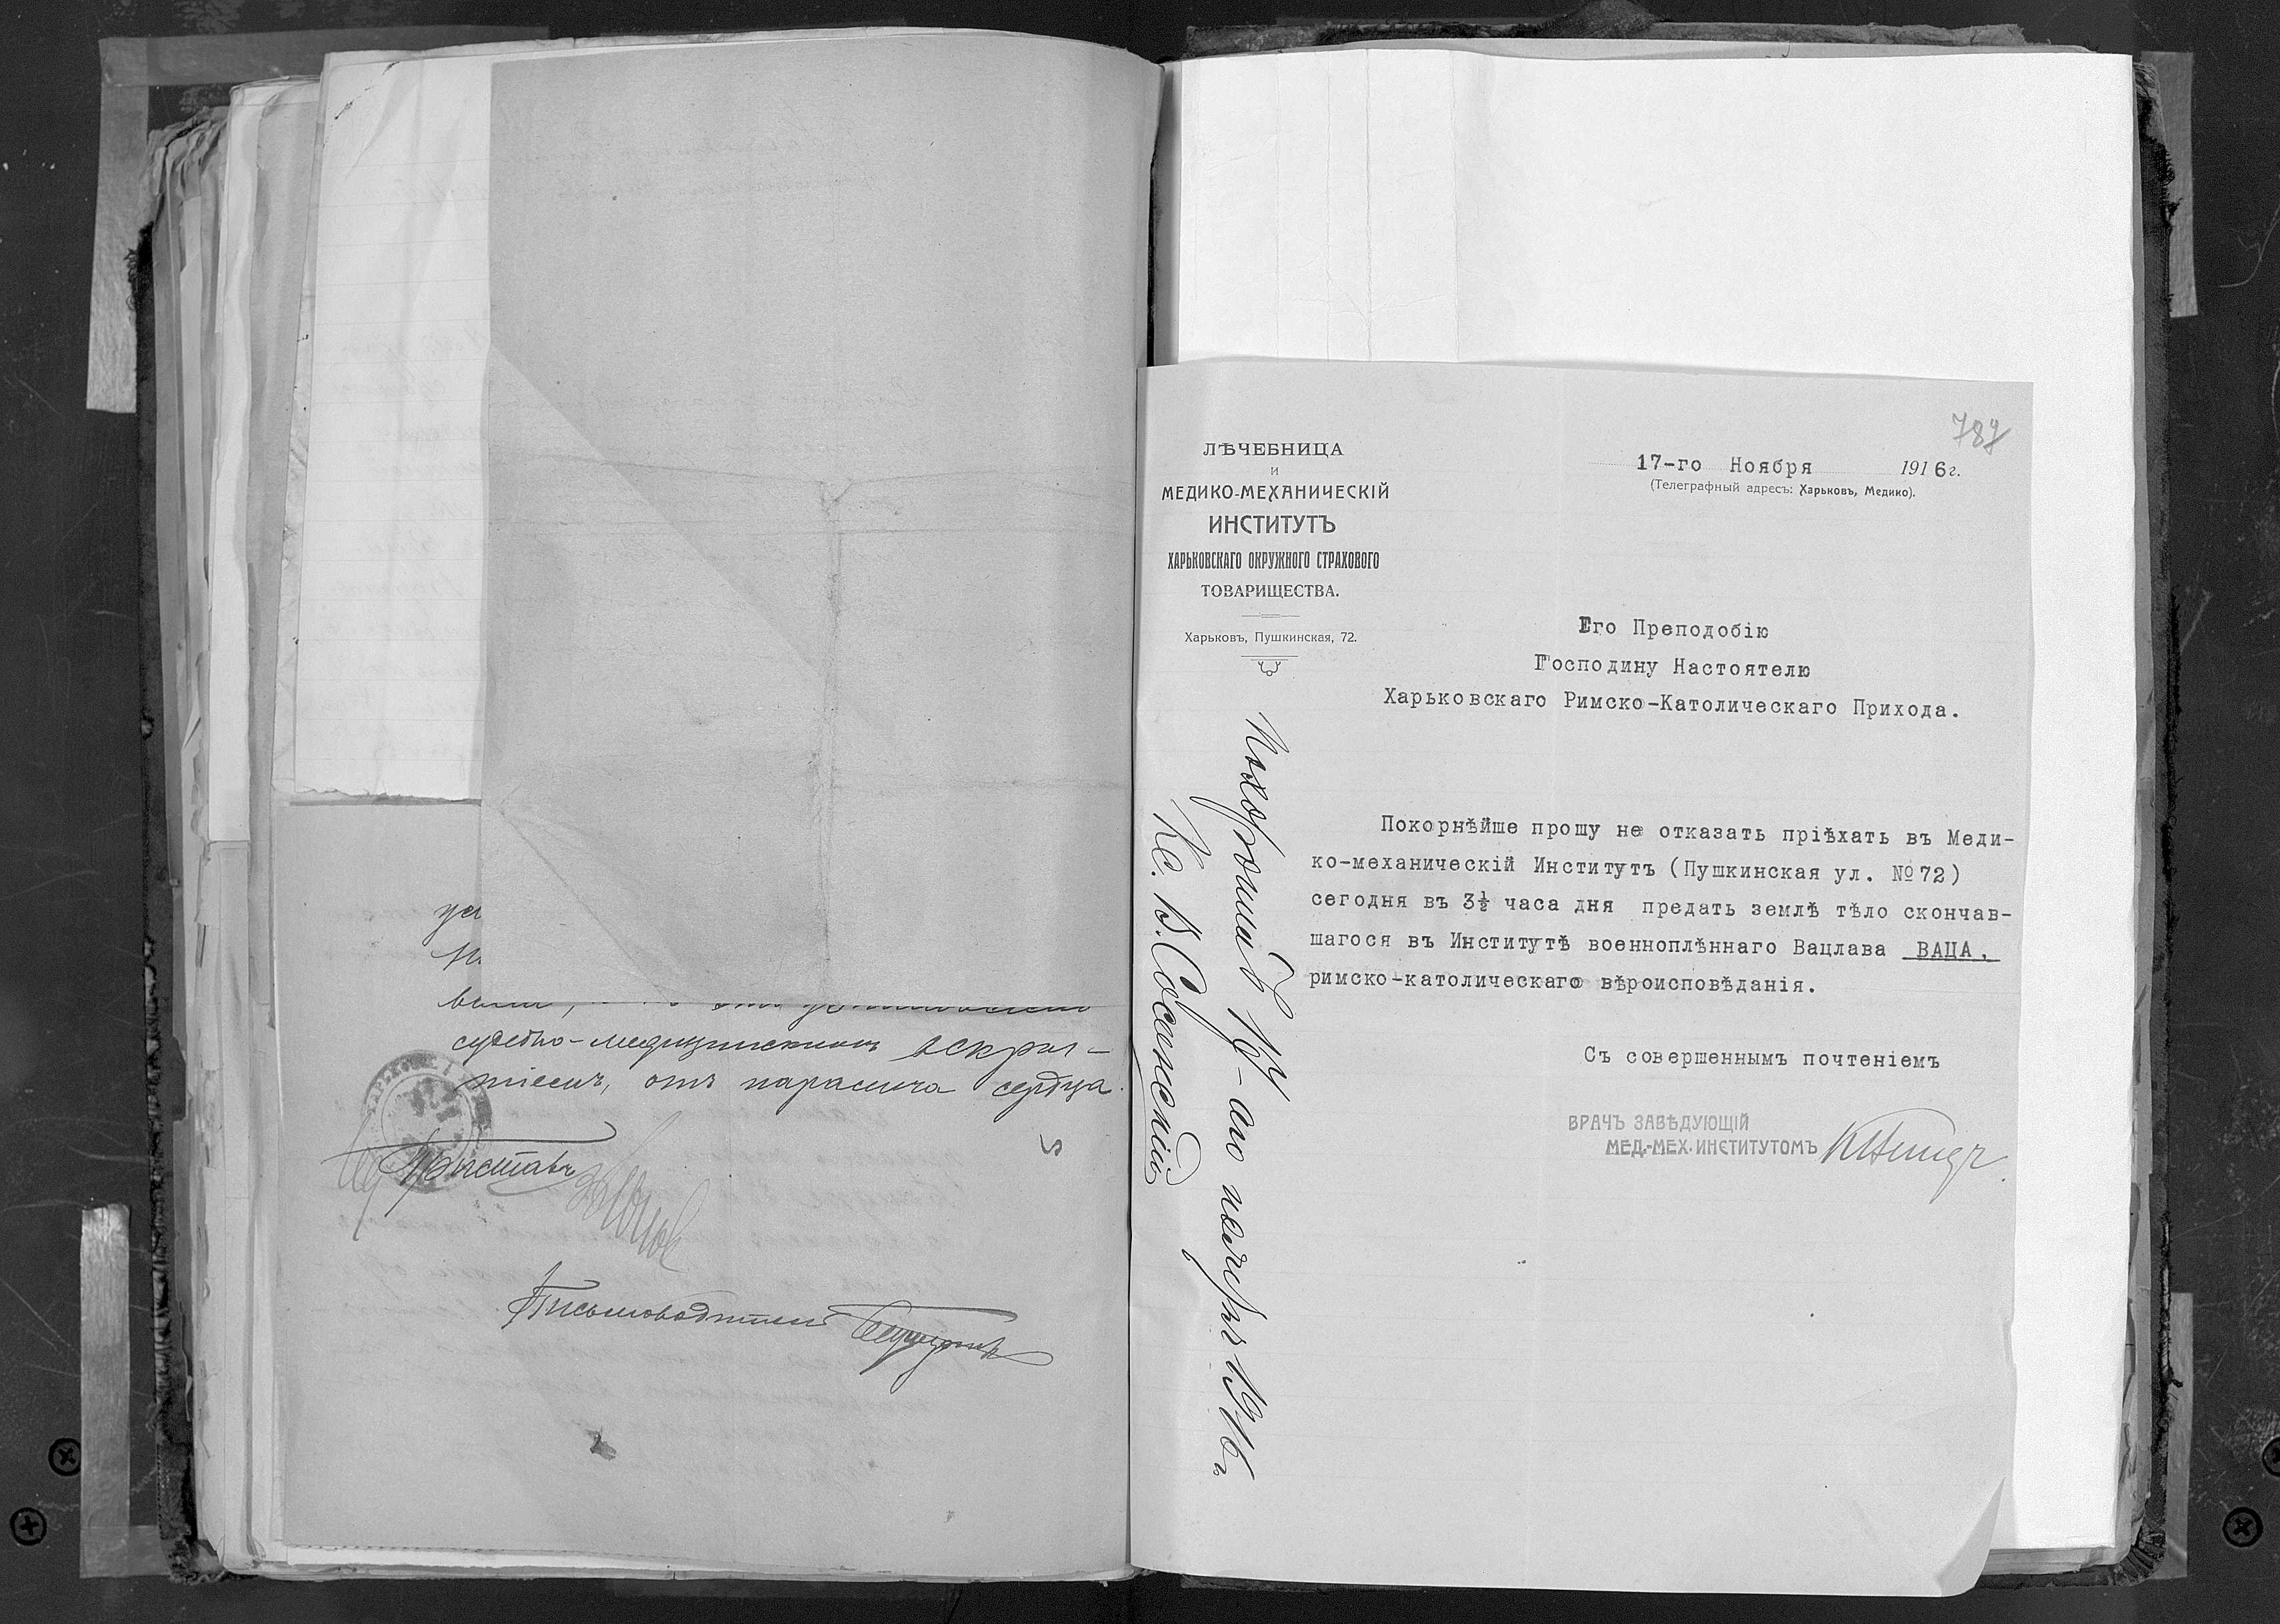 судебно-медицинскимъ вскры-
тіемъ, отъ паралича сердца.
Приставъ
Письмоводитель
787
ЛѢЧЕБНИЦА
И
МЕДИКО-МЕХАНИЧЕСКІЙ
ИНСТИТУТЪ
ХАРЬКОВСКАГО ОКРУЖНОГО СТРАХОВОГО
ТОВАРИЩЕСТВА.
Харьковъ, Пушкинская, 72.
17-го Ноября 1916г.
(Телеграфный адресъ: Харьковъ, Медико).
Его Преподобію
Господину Настоятелю
Харьковскаго Римско-Католическаго Прихода.
Покорнѣйше прошу не отказать пріѣхать въ Меди-
ко-механическій Институтъ (Пушкинская ул. №72)
сегодня въ 3½ часа дня предать землѣ тѣло скончав-
шагося въ Институтѣ военноплѣннаго Вацлава ВАЦА,
римско-католическаго вѣроисповѣданія.
Съ совершеннымъ почтеніемъ
ВРАЧЪ ЗАВѢДУЮЩІЙ
МЕД.-МЕХ. ИНСТИТУТОМЪ
Похоронилъ 17-аго ноября 1916г
Кс. В.